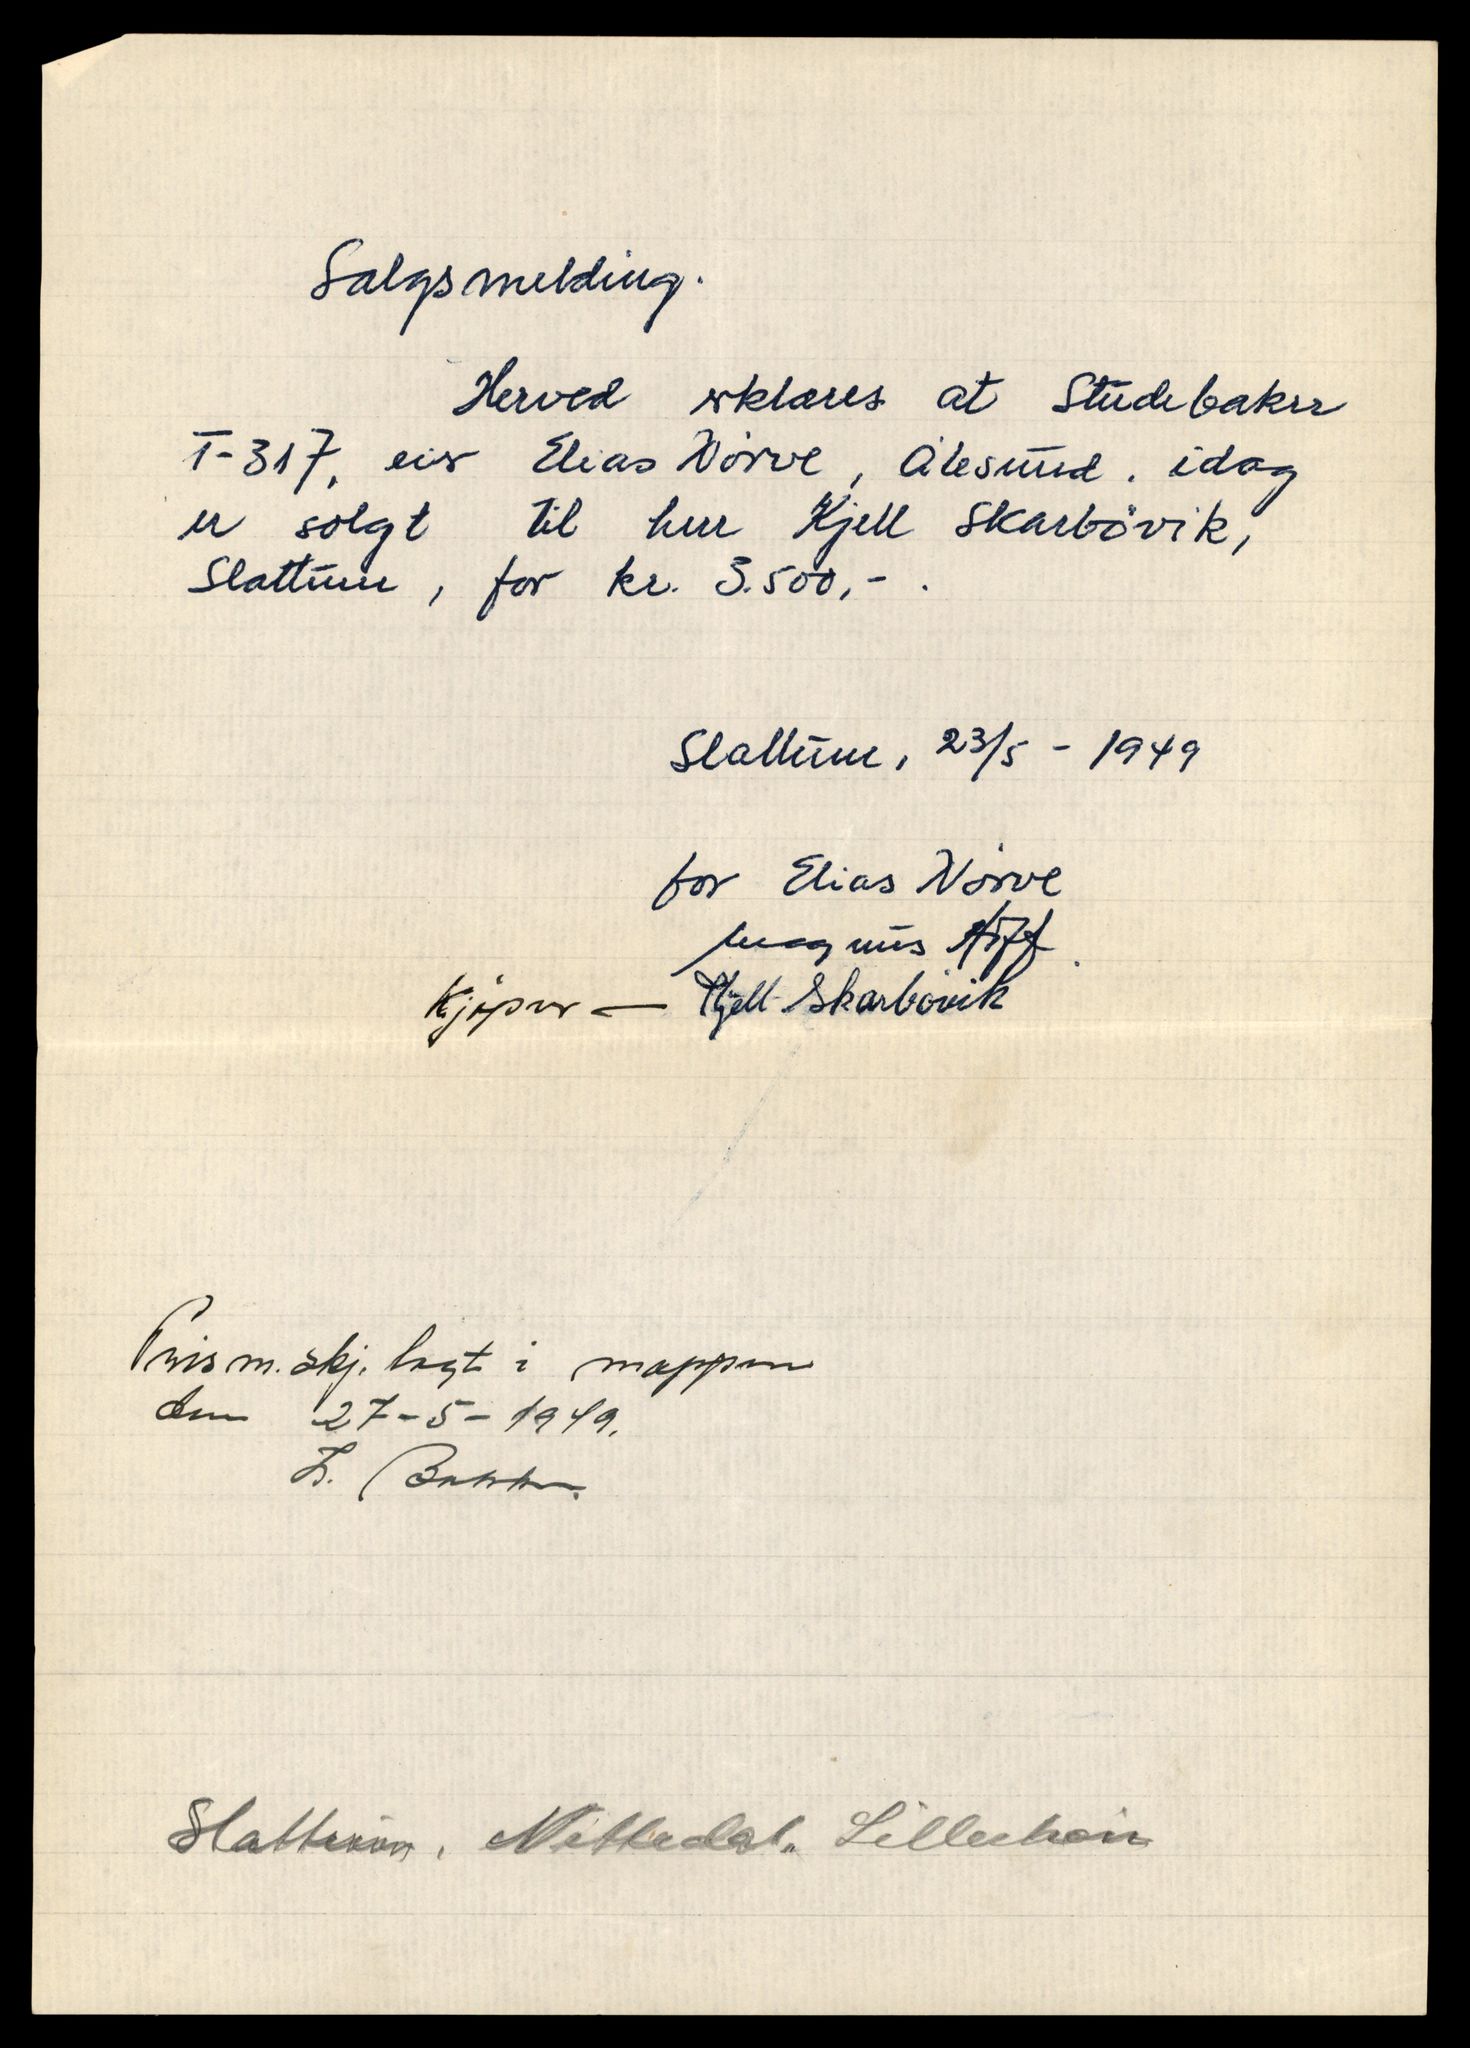 Salgsmelding.
Herved erklæres at Studebaker
T-317, eier Elias Nörve, Ålesund, idag
er solgt til herr Kjell Skarbövik,
Slattum, for kr. 3.500,-.
Slattum, 23/5 - 1949
for Elias Nörve
Magnus
Kjöper — Kjell Skarbövik
Pris m. skj. lagt i mappen
den 27-5-1949.
Slattum, Nittedal.